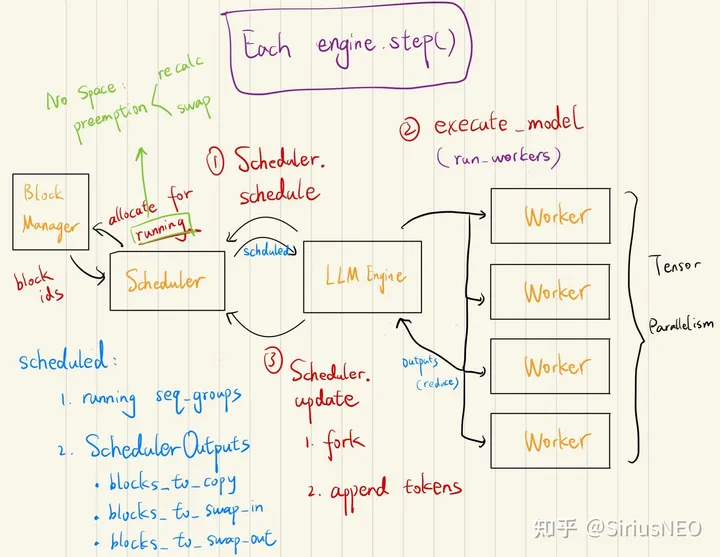 Each engine.step()
No Space:
preemption
recalc
swap
① Scheduler.
schedule
② execute_model
(run_workers)
Block
Manager
allocate for
running
block
ids
Scheduler
schduled
LLM Engine
Worker
Worker
Worker
Worker
Tensor
Parallelism
outputs
(reduce)
③
Scheduler.
update
1. fork
2. append tokens
scheduled:
1. running seq_groups
2. SchedulerOutputs
• blocks_to_copy
• blocks_to_swap_in
• blocks_to_swap_out
知乎 @SiriusNEO